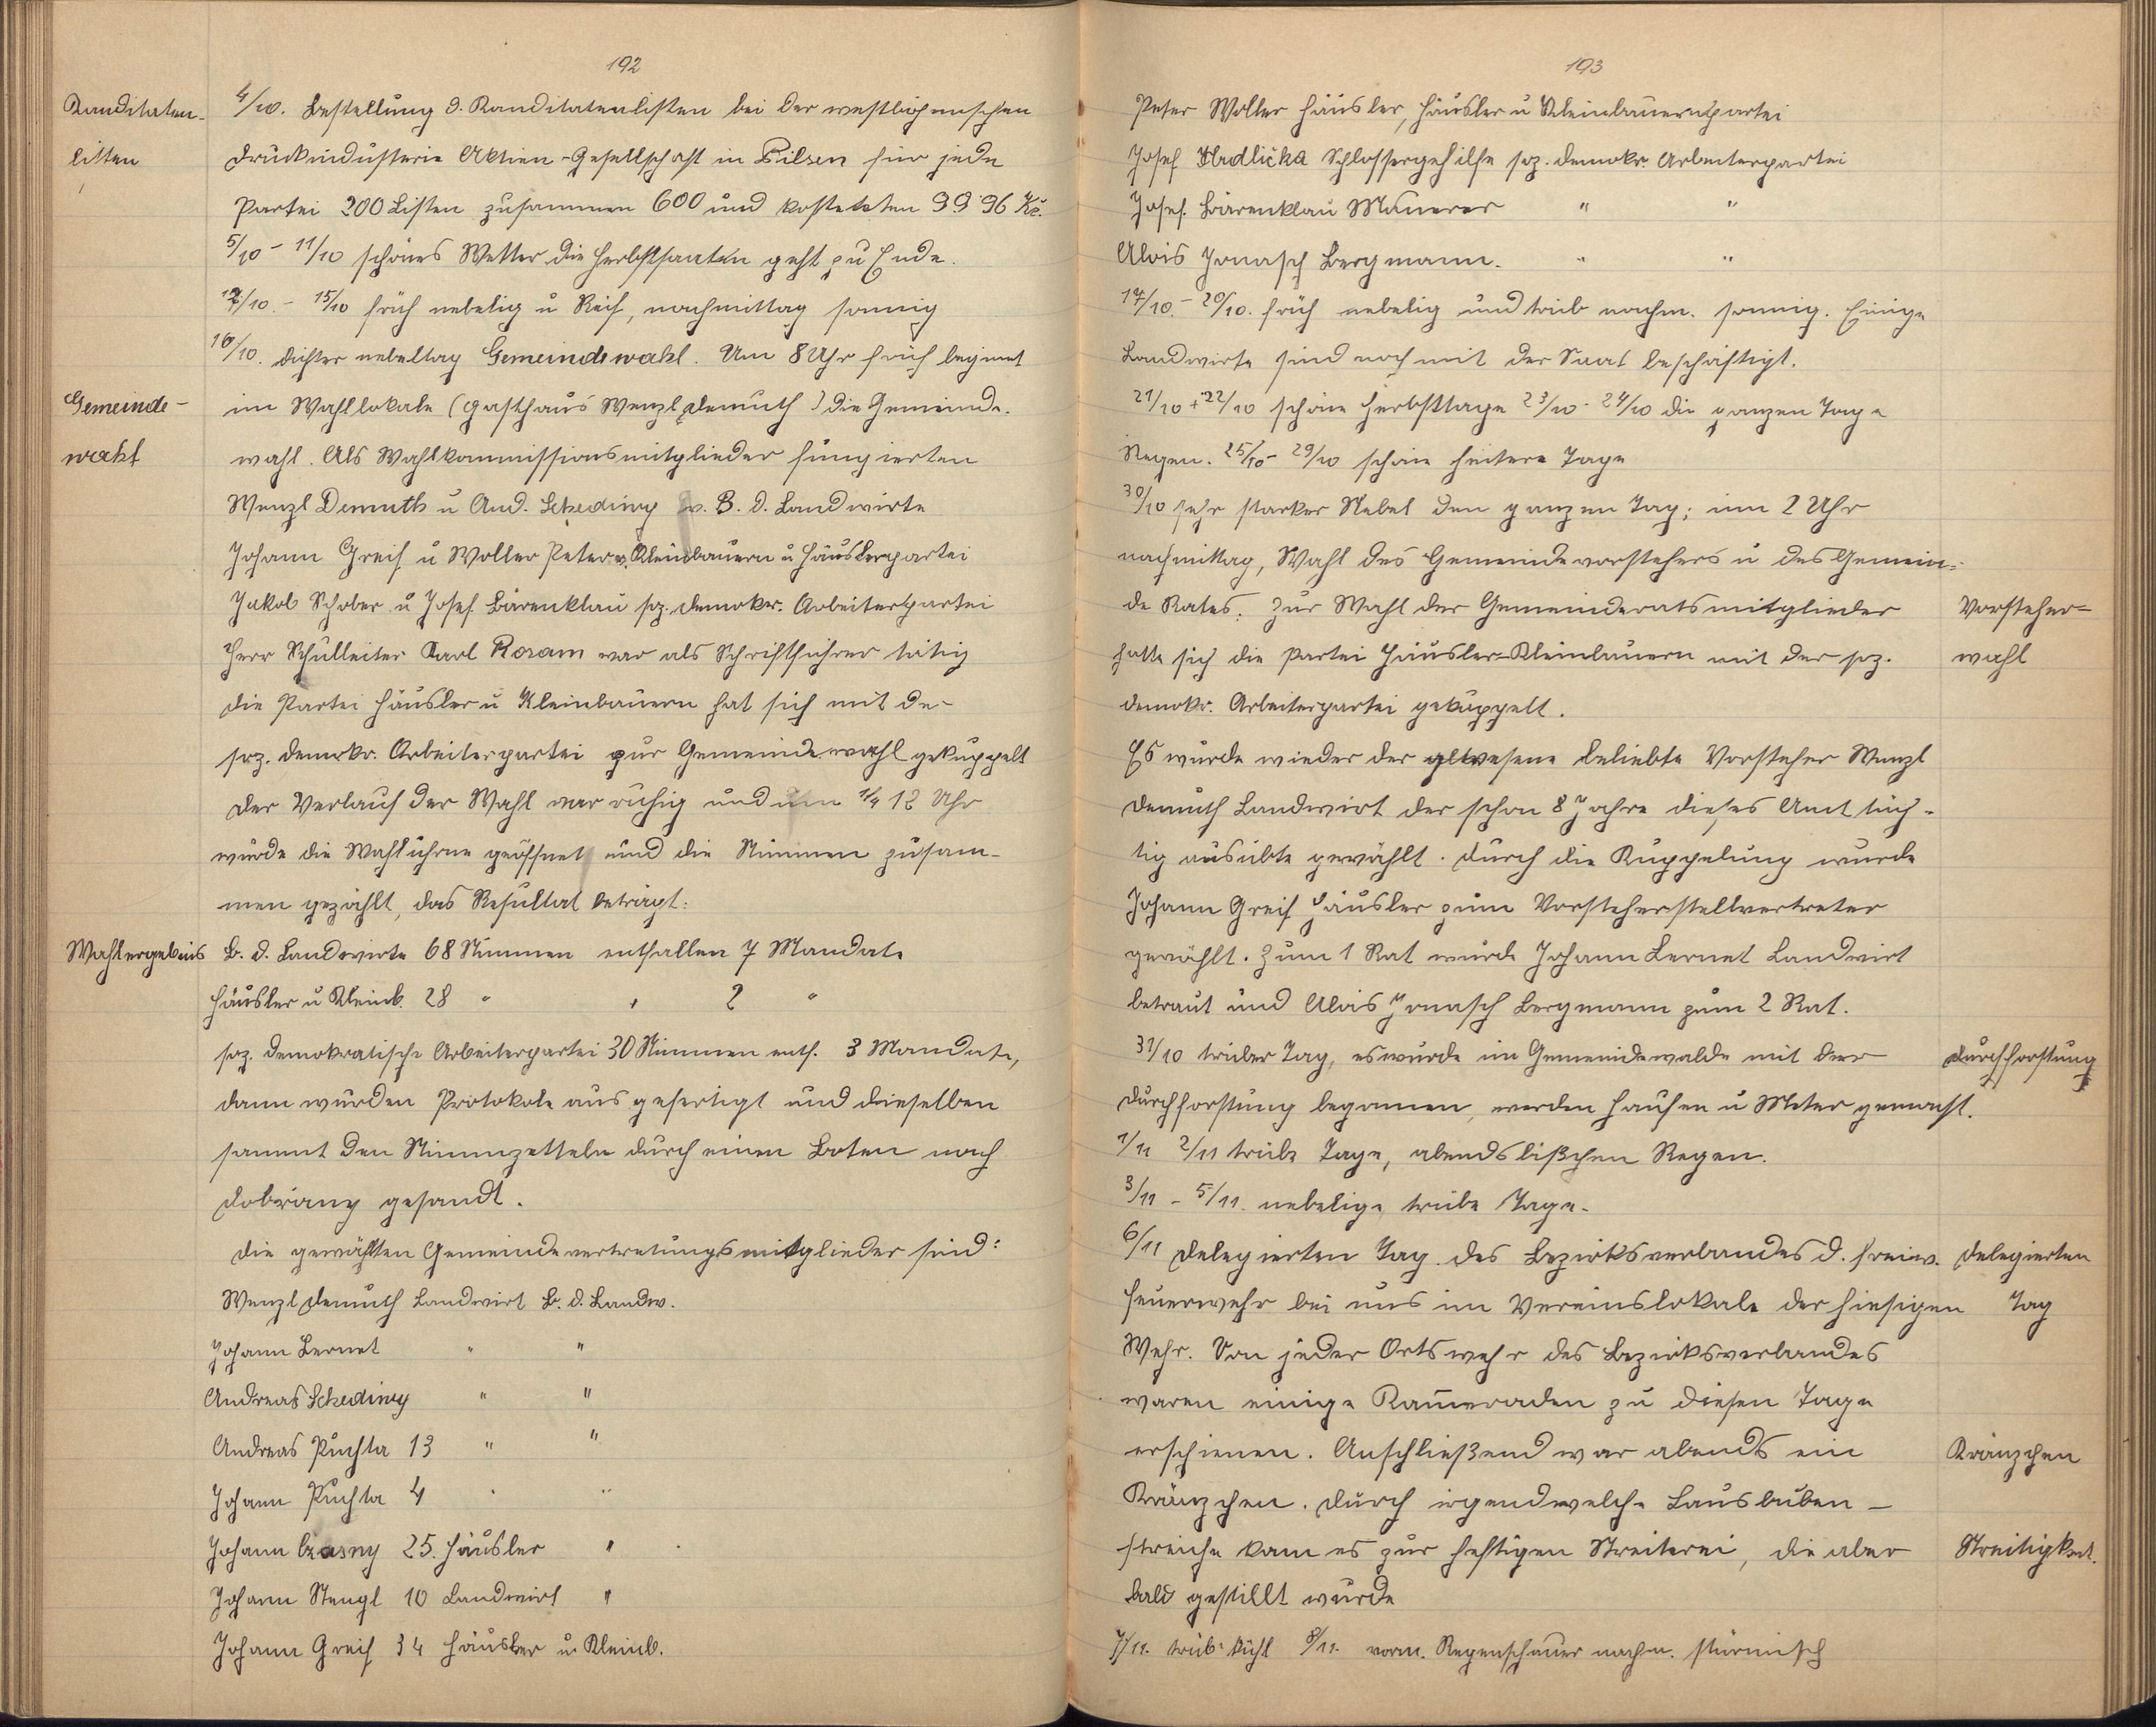 192
Kanditaten-
listen
4/10. Bestellung d. Kanditatenlisten bei der westböhmischen
Druckindustrie Aktien-Gesellschaft in Pilsen für jede
Partei 200 Listen zusammen 600 und kosteten 99·96 Kč.
5/10 - 11/10 schönes Wetter die Herbstsaaten geht zu Ende.
12/10. - 15/10 früh nebelig u Reif, nachmittag sonnig
16/10. dichter nebeltag Gemeindewahl. Um 8 Uhr früh beginnt
Gemeinde-
wahl
im Wahllokale (Gasthaus Wenzl Demuth) die Gemeinde-
wahl. Als Wahlkommissionsmitglieder fungierten
Wenzl Demuth u And. Schediwy v. B. d. Landwirte
Johann Greif u Woller Peter v. Kleinbauern u Häuslerpartei
Jakob Schober u Josef Bärenklau soz. demokr. Arbeiterpartei
Herr Schulleiter Karl Roram war als Schriftführer tätig
Die Partei Häusler u Kleinbauern hat sich mit de-
soz. demokr. Arbeiterpartei zur Gemeindewahl gekuppelt
Der Verlauf der Wahl war ruhig und um 1/4 12 Uhr
wurde die Wahluhrne geöffnet und die Stimmen zusam-
men gezählt, das Resultat beträgt:
Wahlergebnis
B. d. Landwirte 68 Stimmen entfallen 7 Mandate
Häusler u Kleinb. 28 " " 2 "
soz. demokratische Arbeiterpartei 30 Stimmen entf. 3 Mandate,
dann wurden Protokole ausgefertigt und dieselben
sammt den Stimmzetteln durch einen Boten nach
Dobřany gesandt.
Die gewählten Gemeindevertretungsmitglieder sind:
Wenzl Demuth Landwirt B. d. Landw.
Johann Lernet " "
Andreas Schediwy " "
Andreas Puchta 13 " "
Johann Puchta 4 " "
Johann Czasny 25. Häusler "
Johann Stengl 10 Landwirt "
Johann Greif 34 Häusler u. Kleinb.
193
Peter Woller Häusler, Häusler u Kleinbauernpartei
Josef Hrdlička Schlossergehilfe soz. demokr. Arbeiterpartei
Josef. Bärenklau Maurer " "
Alois Jonasch Bergmann. " "
17/10. - 20/10. früh nebelig und trüb nachm. sonnig. Einige
Landwirte sind noch mit der Saat beschäftigt.
21/10 + 22/10 schöne Herbsttage 23/10 - 24/10 die ganzen Tage
Regen. 25/10 - 29/10 schöne heitere Tage
30/10 sehr starker Nebel den ganzen Tag; um 2 Uhr
nachmittag, Wahl des Gemeindevorstehers u des Gemein-
de Rates. Zur Wahl der Gemeinderatsmitglieder
Vorsteher-
wahl
hatte sich die Partei Häusler-Kleinbauern mit der soz.
demokr. Arbeiterpartei gekuppelt.
Es wurde wieder der gewesene beliebte Vorsteher Wenzl
Demuth Landwirt der schon 8 Jahre dieses Amt tüch-
tig ausübte gewählt. Durch die Kuppelung wurde
Johann Greif Häusler zum Vorsteherstellvertreter
gewählt. Zum 1 Rat wurde Johann Lernet Landwirt
betraut und Alois Jonasch Bergmann zum 2 Rat.
31/10 trüber Tag, es wurde im Gemeindewalde mit der
Durchforstung
Durchforstung begonnen, werden Haufen u Meter gemacht.
1/11 2/11 trübe Tage, abends bißchen Regen.
3/11 - 5/11. nebelige trübe Tage.
6/11 Delegierten Tag des Bezirksverbandes d. freiw.
Delegierten
Tag
Feuerwehr bei uns im Vereinslokale der hiesigen
Wehr. Von jeder Ortswehr des Bezirksverbandes
waren einige Kameraden zu diesen Tage
erschienen. Anschließend war abends ein
Kränzchen
Kränzchen. Durch irgendwelche Lausbuben-
streiche kam es zur heftigen Streiterei, die aber
Streitigkeit.
bald gestillt wurde
7/11. trüb· kühl 8/11. vorm. Regenschauer nachm. stürmisch